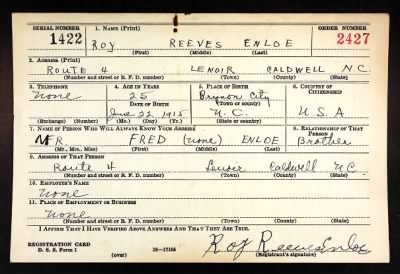 SERIAL NUMBER 1. NAME (Print) ORDER NUMBER
1422 ROY REEVES ENLOE 2427
(First) (Middle) (Last)
2. ADDRESS (Print)
ROUTE 4 LENOIR CALDWELL N.C.
(Number and street or R. F. D. number) (Town) (County) (State)
3. TELEPHONE 4. AGE IN YEARS 5. PLACE OF BIRTH 6. COUNTRY OF CITIZENSHIP
None 25 Bryson City
DATE OF BIRTH (Town or county)
June 22 1915 N.C. U.S.A
(Exchange) (Number) (Mo.) (Day) (Yr.) (State or country)
7. NAME OF PERSON WHO WILL ALWAYS KNOW YOUR ADDRESS 8. RELATIONSHIP OF THAT PERSON
MR. FRED (none) ENLOE Brother
(Mr., Mrs., Miss) (First) (Middle) (Last)
9. ADDRESS OF THAT PERSON
Route 4 Lenoir Caldwell N.C.
(Number and street or R. F. D. number) (Town) (County) (State)
10. EMPLOYER'S NAME
None
11. PLACE OF EMPLOYMENT OR BUSINESS
None
(Number and street or R. F. D. number) (Town) (County) (State)
I AFFIRM THAT I HAVE VERIFIED ABOVE ANSWERS AND THAT THEY ARE TRUE.
REGISTRATION CARD
D. S. S. Form 1 16—17105 Roy Reeves Enloe
(over) (Registrant's signature)